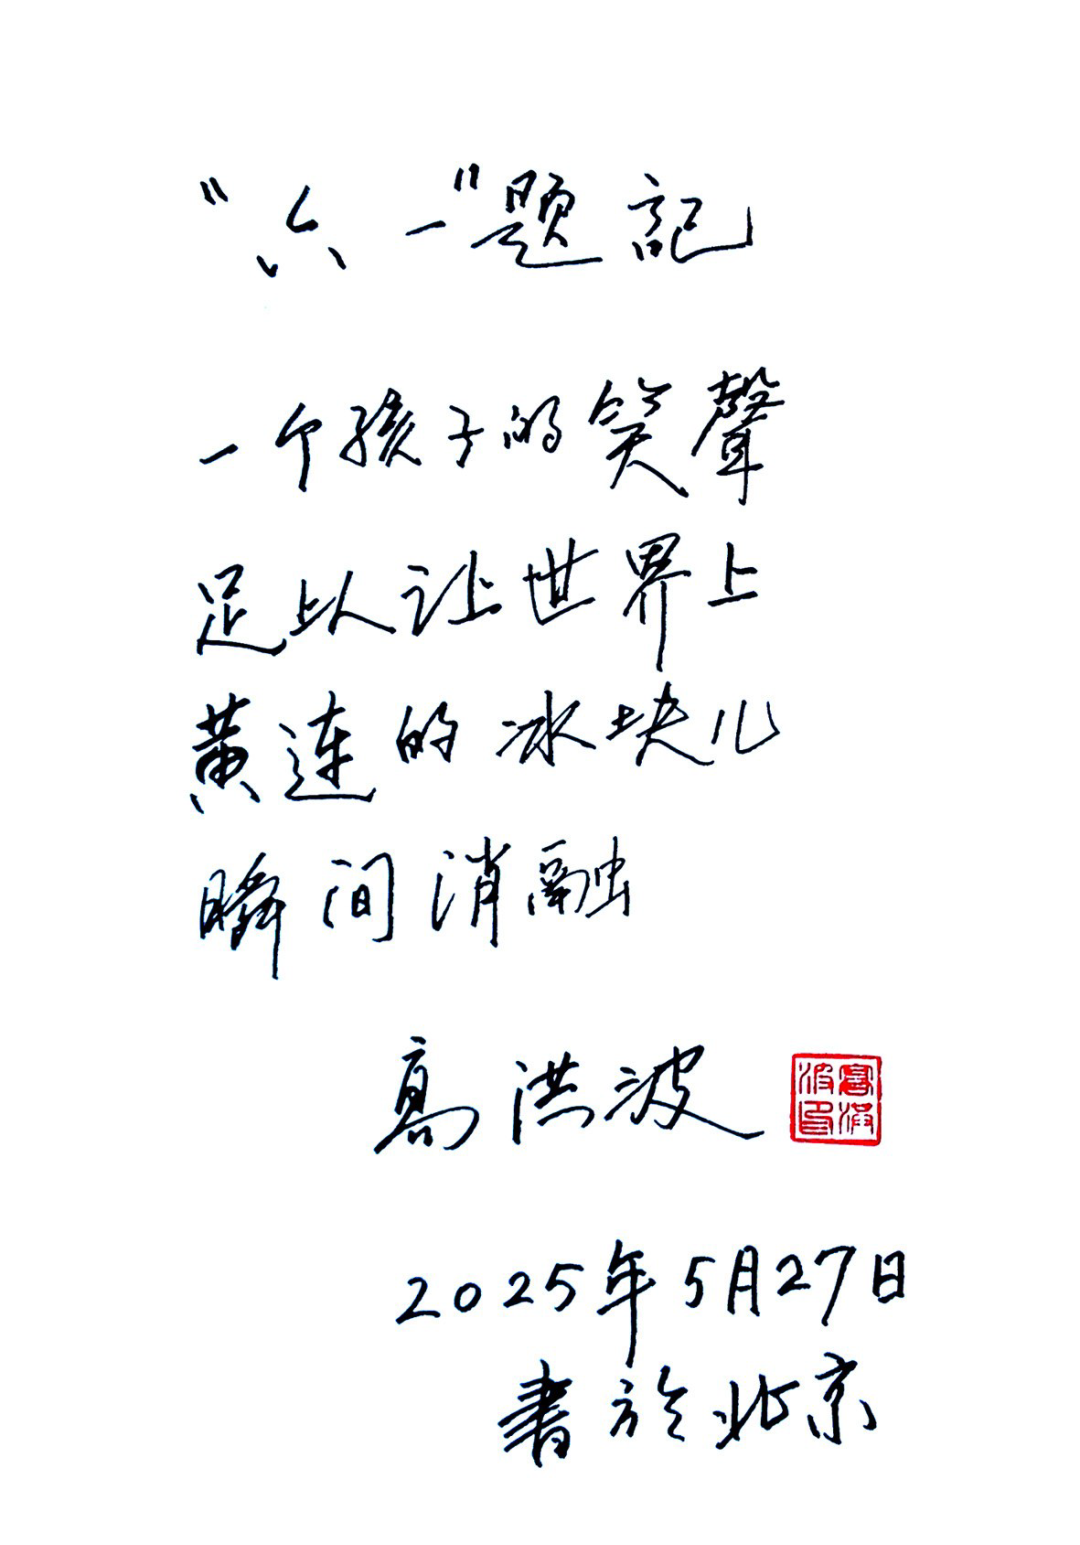 “六一”题記
一个孩子的笑聲
足以让世界上
黄连的冰块儿
瞬间消融
高洪波
高洪波印
2025年5月27日
書於北京